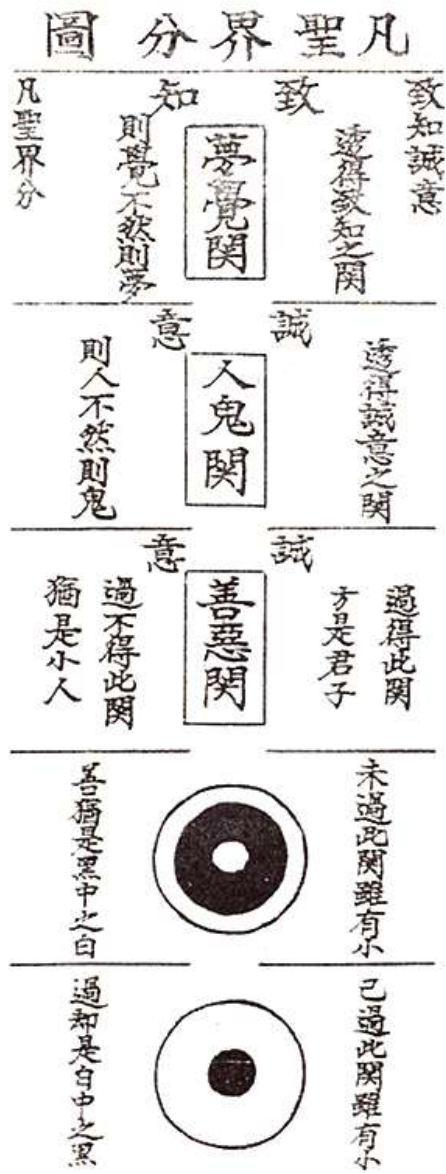 凡聖界分圖
致知誠意
凡聖界分
致知
透得致知之関
夢覺関
則覺不然則夢
誠意
透得誠意之関
人鬼関
則人不然則鬼
誠意
過得此関
方是君子
善惡関
過不得此関
猶是小人
未過此関雖有小
善猶是黑中之白
已過此関雖有小
過却是白中之黑